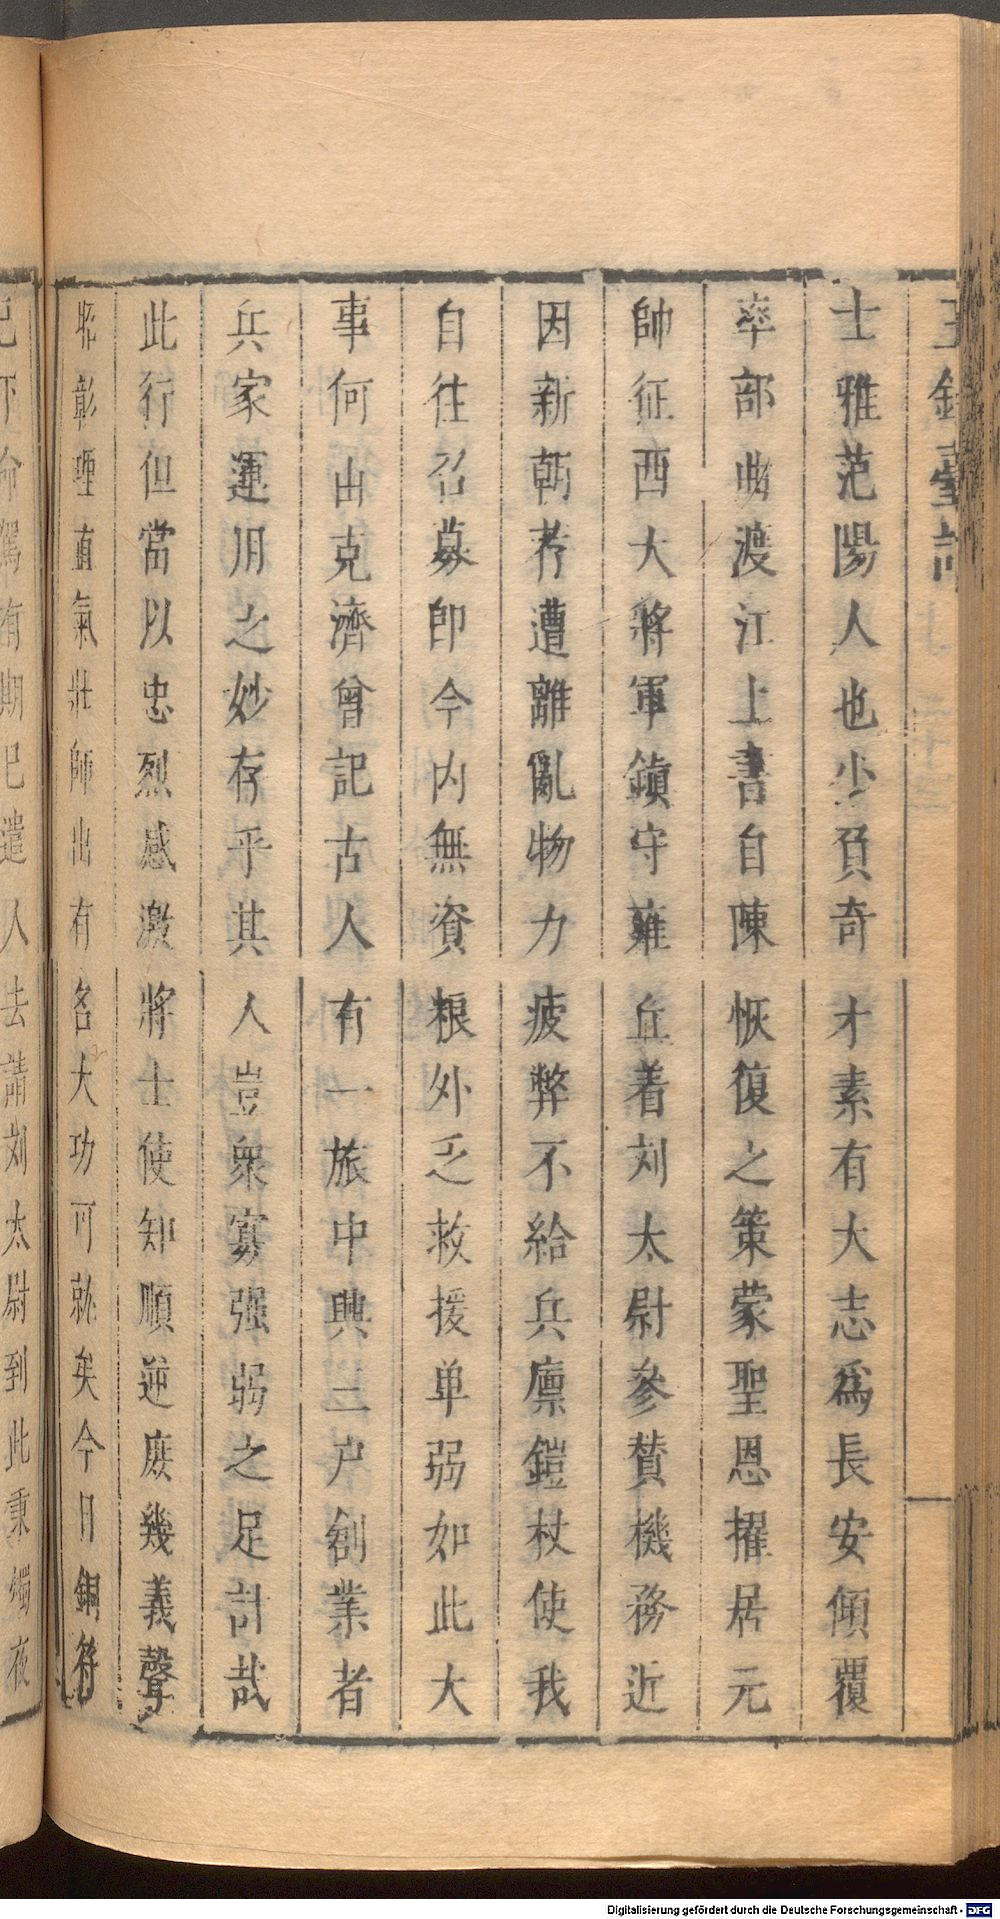 玉鏡臺記
士雅范陽人也少負奇才素有大志爲長安傾覆
率部曲渡江上書自陳恢復之策蒙聖恩擢居元
帥征西大將軍鎮守雍丘着刘太尉參賛機務近
因新朝荐遭離亂物力疲弊不給兵廪鎧杖使我
自往召募即今内無資粮外乏救援单弱如此大
事何由克濟曾記古人有一旅中興三户創業者
兵家運用之妙存乎其人豈衆寡强弱之足計哉
此行但當以忠烈感激將士使知順逆庶幾義聲
昭彰理直氣壯師出有名大功可就矣今日銅符
已下命駕有期已遣人去請刘太尉到此秉燭夜
Digitalisierung gefördert durch die Deutsche Forschungsgemeinschaft - DFG